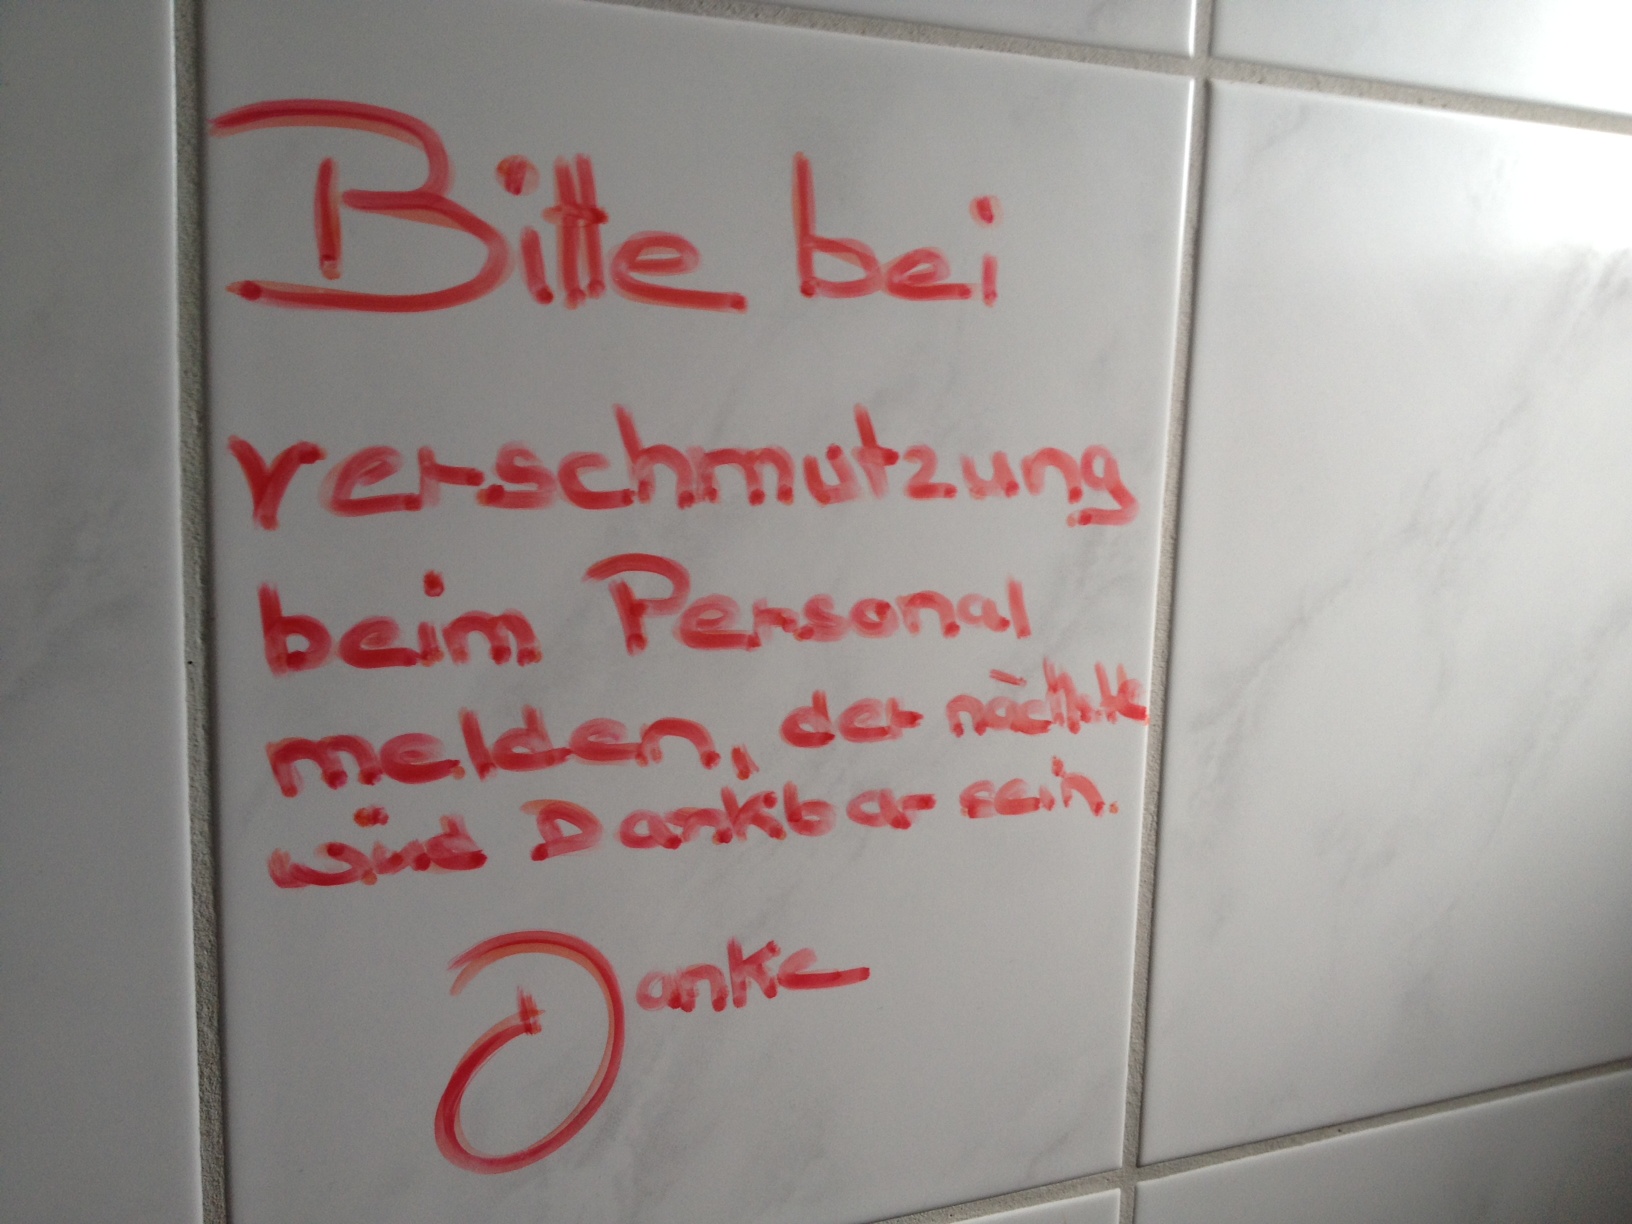 Bitte bei
verschmutzung
beim Personal
melden, der nächste
wird Dankbar sein.
Danke